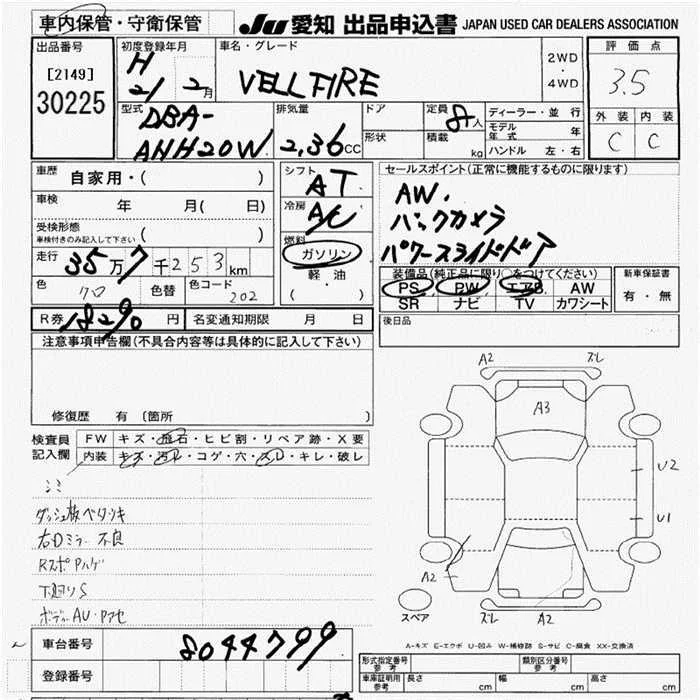 車内保管・守衛保管
JU 愛知 出品申込書 JAPAN USED CAR DEALERS ASSOCIATION
出品番号
[2149]
30225
初度登録年月
H
21 2月
車名・グレード
VELLFIRE
2WD
・
4WD
評価点
3.5
外装 内装
C C
型式
DBA-
ANH20W
排気量
2,36cc
ドア
形状
定員 8人
積載 kg
ディーラー・並行
モデル年式 年
ハンドル 左・右
車歴
自家用・( )
車検
年 月( 日)
受検形態
車検付きのみ記入して下さい ( )
走行 35万7千253km
色 クロ 色替 色コード 202
シフト
AT
冷房
A/C
燃料
ガソリン
軽油
( )
セールスポイント(正常に機能するものに限ります)
AW.
バックカメラ
パワースライドドア
装備品(純正品に限り○をつけてください)
PS PW エアB AW
SR ナビ TV カワシート
新車保証書
有・無
R券 18290円 名変通知期限 月 日
後日品
注意事項申告欄(不具合内容等は具体的に記入して下さい)
修復歴 有 〔箇所
検査員
記入欄
FW キズ・飛石・ヒビ割・リペア跡・X要
内装 キズ・汚レ・コゲ・穴・スレ・キレ・破レ
シミ
ダッシュ板ベタツキ
右Dミラー不良
RスポPハゲ
下廻りS
ボディーAU・アセ
A2 ズレ
A3
U2
U1
A2
スペア
ズレ A2
A-キズ E-エクボ U-凹み W-補修跡 S-サビ C-腐食 XX-交換済
車台番号
8044799
登録番号
形式指定番号
参考
類別区分番号
参考
車庫証明用
参考
長さ cm 幅 cm 高さ cm